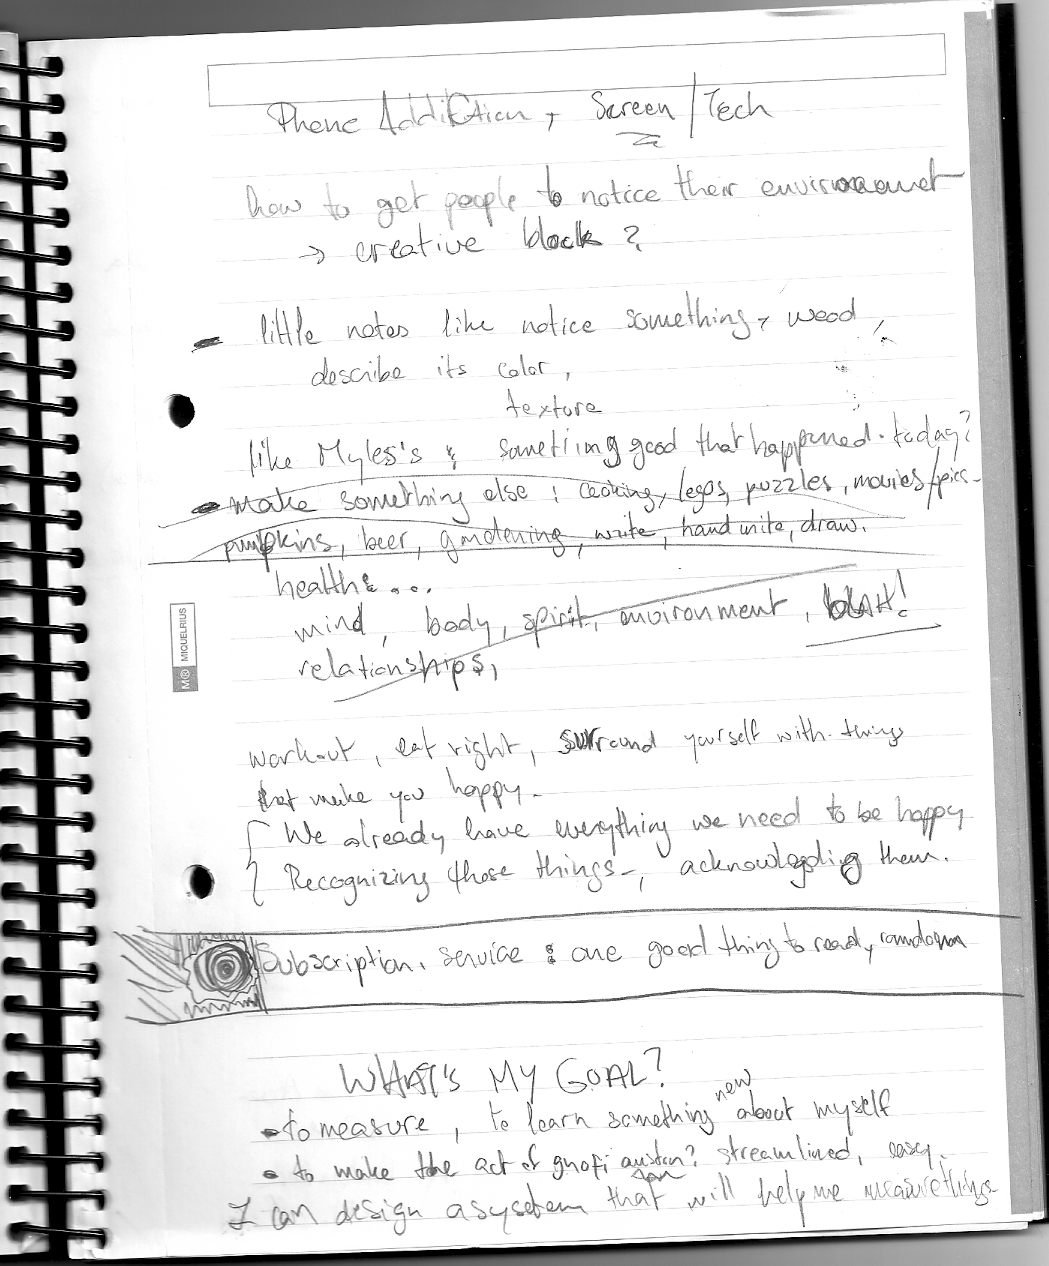 Phone Addiction, Screen/Tech
how to get people to notice their environment
→ creative block?
- little notes like notice something, wood,
describe its color,
texture
like Myles's & something good that happened. today?
- make something else: cooking, legos, puzzles, movies/pics-
pumpkins, beer, gardening, write, hand write, draw.
health: ...
mind, body, spirit, environment, blah!
relationships,
M® MIQUELRIUS
workout, eat right, surround yourself with things
that make you happy.
We already have everything we need to be happy
Recognizing those things-, acknowledging them.
Subscription. service: one good thing to read, random
WHAT'S MY GOAL?
- to measure, to learn something new about myself
- to make the act of streamlined, easy.
I can design a sysetem that will help me measure things